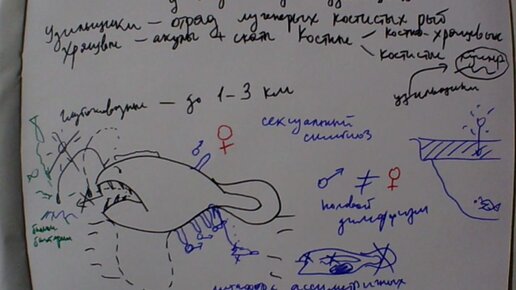 Удильщики – отряд лучеперых костистых рыб
Хрящевые – акулы + скаты Костные < костно-хрящевые
костистые
удильщики
глубоководные – до 1-3 км
сексуальный
симбиоз
♂ ♀
♂ ≠ ♀
половой
диморфизм
бактерии